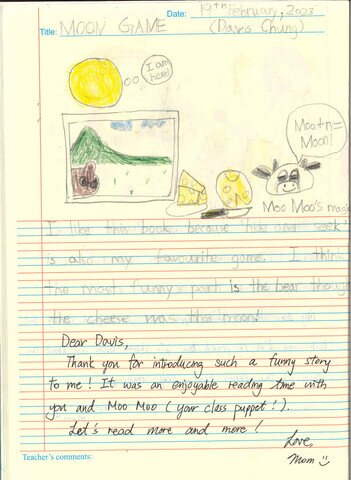 Date: 19th February, 2023
Title: MOON GAME (Davis Chung)
I am here!
Moo+n=
Moon!
Moo Moo's magic
I like this book because "hide and seek"
is also my favourite game. I think
the most funny part is the bear though
the cheese was the moon!
Dear Davis,
Thank you for introducing such a funny story
to me! It was an enjoyable reading time with
you and Moo Moo (your class puppet!).
Let's read more and more!
Love,
Mom
Teacher's comments: